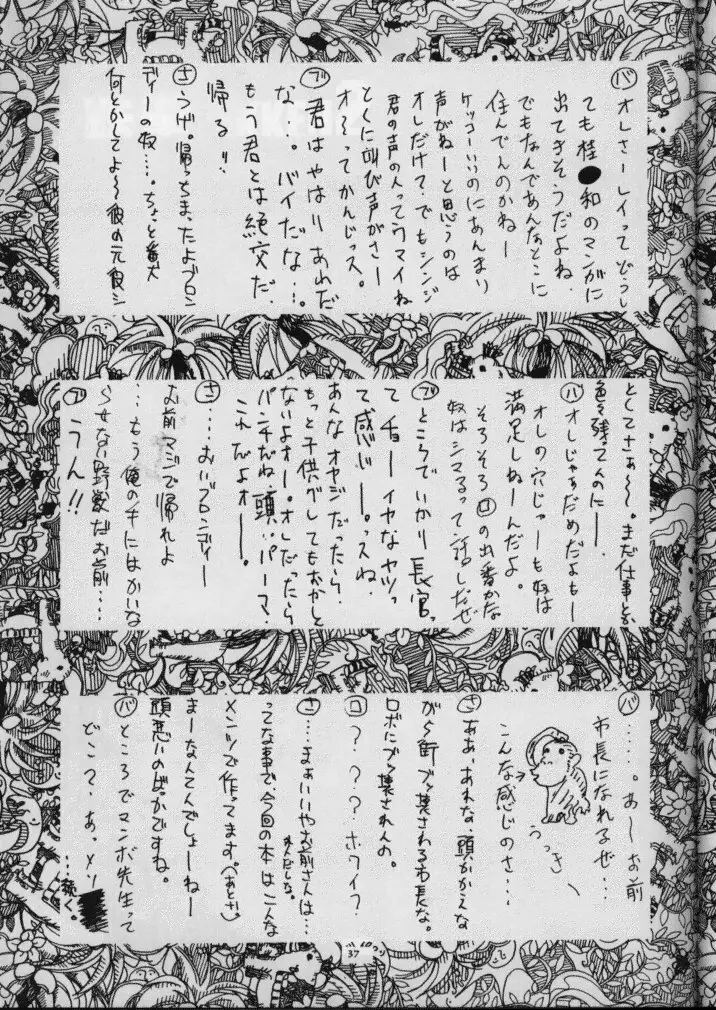 バ オレさーレイってどうし
ても桂●和のマンガに
出てきそうだよね。
でもなんであんなとこに
住んでんのかねー
ケッコーいいのにあんまり
声がねーと思うのは
オレだけ?でもシンジ
君の声の人ってウマイね
とくに叫び声がさー
オーってかんじっス。
ブ 君はやはりあれだ
な…。バイだな…。
もう君とは絶交だ。
帰る!!
さ うげ。帰っちまったよブロン
ディーの奴…。ちょと
何とかしてよ〜彼の元
としてさぁ〜。まだ仕事とか
色々残ってんのにー。
バ オレじゃぁだめだよもー
オレの穴じゃーも奴は
満足しねーんだよ。
そろそろロの出番かな
奴はシマるって話しだぜ
ブ ところでいかり長官っ
てチョーイヤなヤツっ
て感じー。っスね。
あんなオヤジだったら、
もっと子供グレてもおかしく
ないよォー。オレだったら
パンチだね。頭パーマ。
これだよオー。
さ …おいブロンディー
お前マジで帰れよ
…もう俺の手にはおえな
らせない野獣だお前…
ブ うん!!
バ ……。あーお前
市長になれるぜ…
こんな感じのさ…
うっきー
さ ああ、あれな、頭かかえな
がら街ブッ壊される市長な。
ロボにブッ壊されんの。
ロ ???ホワイ?
さ …まぁいいやお前さんは…
ってな事で、今回の本はこんな
メンツで作ってます。(あとさ)
まーなんてんでしょーねー
頭悪いのばっかですね。
バ ところでマンボ先生って
どこ?あ、メソ
…続く。
37